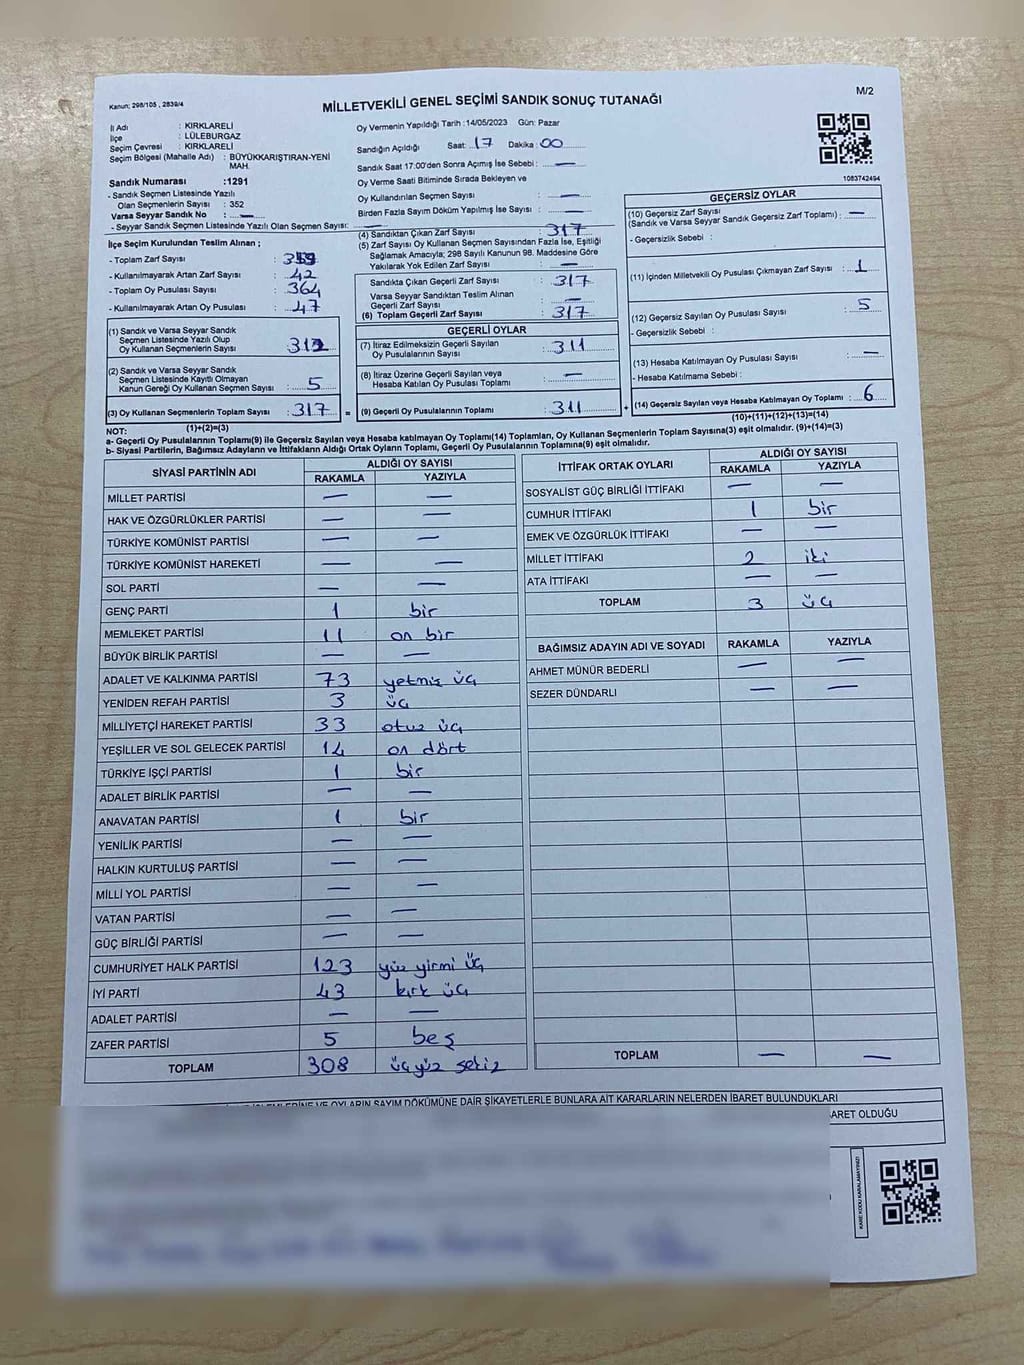 Kanun; 298/105 , 2839/4
M/2
MİLLETVEKİLİ GENEL SEÇİMİ SANDIK SONUÇ TUTANAĞI
İl Adı : KIRKLARELİ
İlçe : LÜLEBURGAZ
Seçim Çevresi : KIRKLARELİ
Seçim Bölgesi (Mahalle Adı) : BÜYÜKKARIŞTIRAN-YENİ
MAH.
Sandık Numarası :1291
- Sandık Seçmen Listesinde Yazılı
Olan Seçmenlerin Sayısı : 352
Varsa Seyyar Sandık No : —
- Seyyar Sandık Seçmen Listesinde Yazılı Olan Seçmen Sayısı: —
İlçe Seçim Kurulundan Teslim Alınan ;
- Toplam Zarf Sayısı :
- Kullanılmayarak Artan Zarf Sayısı : 42
- Toplam Oy Pusulası Sayısı : 364
- Kullanılmayarak Artan Oy Pusulası : 47
(1) Sandık ve Varsa Seyyar Sandık
Seçmen Listesinde Yazılı Olup
Oy Kullanan Seçmenlerin Sayısı : 312
(2) Sandık ve Varsa Seyyar Sandık
Seçmen Listesinde Kayıtlı Olmayan
Kanun Gereği Oy Kullanan Seçmen Sayısı : 5
(3) Oy Kullanan Seçmenlerin Toplam Sayısı : 317 =
(1)+(2)=(3)
Oy Vermenin Yapıldığı Tarih :14/05/2023 Gün: Pazar
Sandığın Açıldığı Saat: 17 Dakika : 00
Sandık Saat 17:00'den Sonra Açımış İse Sebebi : —
Oy Verme Saati Bitiminde Sırada Bekleyen ve
Oy Kullandırılan Seçmen Sayısı : —
Birden Fazla Sayım Döküm Yapılmış İse Sayısı : —
(4) Sandıktan Çıkan Zarf Sayısı : 317
(5) Zarf Sayısı Oy Kullanan Seçmen Sayısından Fazla İse, Eşitliği
Sağlamak Amacıyla; 298 Sayılı Kanunun 98. Maddesine Göre
Yakılarak Yok Edilen Zarf Sayısı : —
Sandıkta Çıkan Geçerli Zarf Sayısı : 317
Varsa Seyyar Sandıktan Teslim Alınan
Geçerli Zarf Sayısı : —
(6) Toplam Geçerli Zarf Sayısı : 317
GEÇERLİ OYLAR
(7) İtiraz Edilmeksizin Geçerli Sayılan
Oy Pusulalarının Sayısı : 311
(8) İtiraz Üzerine Geçerli Sayılan veya
Hesaba Katılan Oy Pusulası Toplamı : —
(9) Geçerli Oy Pusulalarının Toplamı : 311 +
1083742494
GEÇERSİZ OYLAR
(10) Geçersiz Zarf Sayısı
(Sandık ve Varsa Seyyar Sandık Geçersiz Zarf Toplamı) : —
- Geçersizlik Sebebi :
(11) İçinden Milletvekili Oy Pusulası Çıkmayan Zarf Sayısı : 1
(12) Geçersiz Sayılan Oy Pusulası Sayısı : 5
- Geçersizlik Sebebi :
(13) Hesaba Katılmayan Oy Pusulası Sayısı : —
- Hesaba Katılmama Sebebi :
(14) Geçersiz Sayılan veya Hesaba Katılmayan Oy Toplamı : 6
(10)+(11)+(12)+(13)=(14)
NOT:
a- Geçerli Oy Pusulalarının Toplamı(9) ile Geçersiz Sayılan veya Hesaba Katılmayan Oy Toplamı(14) Toplamları, Oy Kullanan Seçmenlerin Toplam Sayısına(3) eşit olmalıdır. (9)+(14)=(3)
b- Siyasi Partilerin, Bağımsız Adayların ve İttifakların Aldığı Ortak Oyların Toplamı, Geçerli Oy Pusulalarının Toplamına(9) eşit olmalıdır.
SİYASİ PARTİNİN ADI ALDIĞI OY SAYISI
RAKAMLA YAZIYLA
MİLLET PARTİSİ — —
HAK VE ÖZGÜRLÜKLER PARTİSİ — —
TÜRKİYE KOMÜNİST PARTİSİ — —
TÜRKİYE KOMÜNİST HAREKETİ — —
SOL PARTİ — —
GENÇ PARTİ 1 bir
MEMLEKET PARTİSİ 11 on bir
BÜYÜK BİRLİK PARTİSİ — —
ADALET VE KALKINMA PARTİSİ 73 yetmiş üç
YENİDEN REFAH PARTİSİ 3 üç
MİLLİYETÇİ HAREKET PARTİSİ 33 otuz üç
YEŞİLLER VE SOL GELECEK PARTİSİ 14 on dört
TÜRKİYE İŞÇİ PARTİSİ 1 bir
ADALET BİRLİK PARTİSİ — —
ANAVATAN PARTİSİ 1 bir
YENİLİK PARTİSİ — —
HALKIN KURTULUŞ PARTİSİ — —
MİLLİ YOL PARTİSİ — —
VATAN PARTİSİ — —
GÜÇ BİRLİĞİ PARTİSİ — —
CUMHURİYET HALK PARTİSİ 123 yüz yirmi üç
İYİ PARTİ 43 kırk üç
ADALET PARTİSİ — —
ZAFER PARTİSİ 5 beş
TOPLAM 308 üçyüz sekiz
İTTİFAK ORTAK OYLARI ALDIĞI OY SAYISI
RAKAMLA YAZIYLA
SOSYALİST GÜÇ BİRLİĞİ İTTİFAKI — —
CUMHUR İTTİFAKI 1 bir
EMEK VE ÖZGÜRLÜK İTTİFAKI — —
MİLLET İTTİFAKI 2 iki
ATA İTTİFAKI — —
TOPLAM 3 üç
BAĞIMSIZ ADAYIN ADI VE SOYADI RAKAMLA YAZIYLA
AHMET MÜNÜR BEDERLİ — —
SEZER DÜNDARLI — —
TOPLAM — —
VE OYLARIN SAYIM DÖKÜMÜNE DAİR ŞİKAYETLERLE BUNLARA AİT KARARLARIN NELERDEN İBARET BULUNDUKLARI
BARET OLDUĞU
KARE KODU KARALAMAYINIZ!